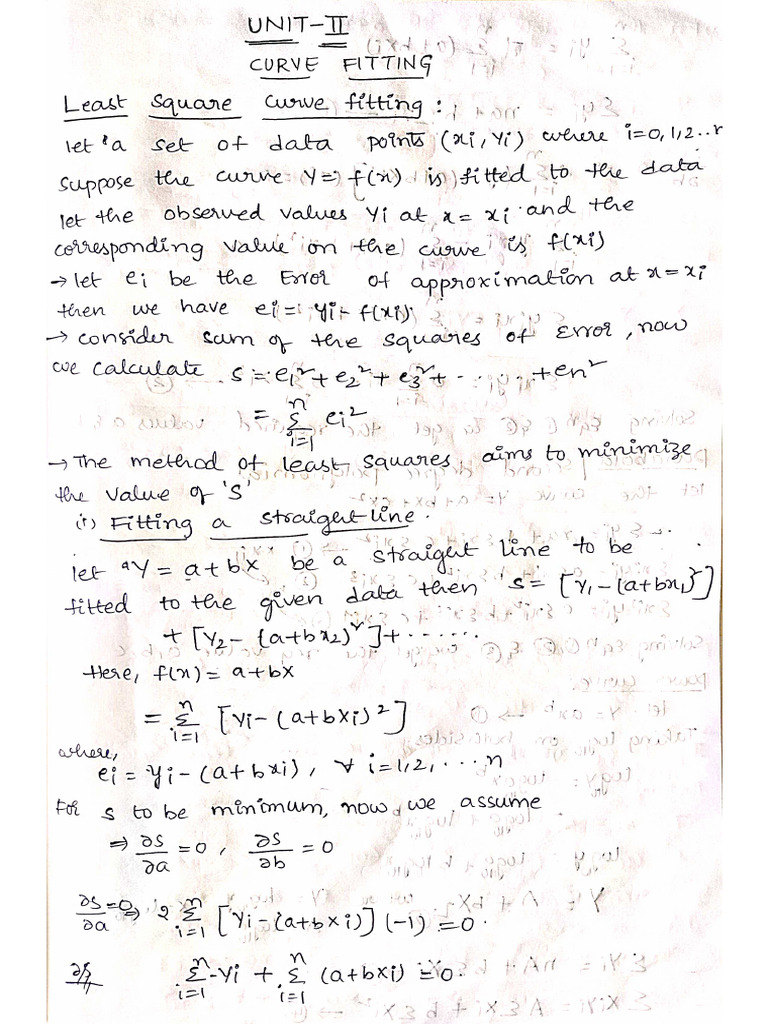 UNIT-II
CURVE FITTING
Least Square Curve fitting :
let a set of data points (xi, yi) where i=0,1,2..n
Suppose the curve Y= f(x) is fitted to the data
let the observed values yi at x = xi and the
corresponding value on the curve is f(xi)
→ let ei be the Error of approximation at x = xi
then we have ei = yi - f(xi)
→ consider sum of the squares of Error, now
we calculate s = e1² + e2² + e3² + ...... + en²
= Σ_{i=1}^{n} ei²
→ The method of least squares aims to minimize
the value of 's'
(i) Fitting a straight line.
let "Y = a+bx be a straight line to be
fitted to the given data then 's = [Y1 - (a+bx1)²]
+ [Y2 - (a+bx2)²] + ......
Here, f(x) = a+bx
= Σ_{i=1}^{n} [Yi - (a+bxi)²]
where,
ei = yi - (a+bxi), ∀ i=1,2,...n
For s to be minimum, now we assume
⇒ ∂s/∂a = 0, ∂s/∂b = 0
∂s/∂a = 0 ⇒ 2 Σ_{i=1}^{n} [Yi - (a+bxi)] (-1) = 0.
Σ_{i=1}^{n} -Yi + Σ_{i=1}^{n} (a+bxi) = 0